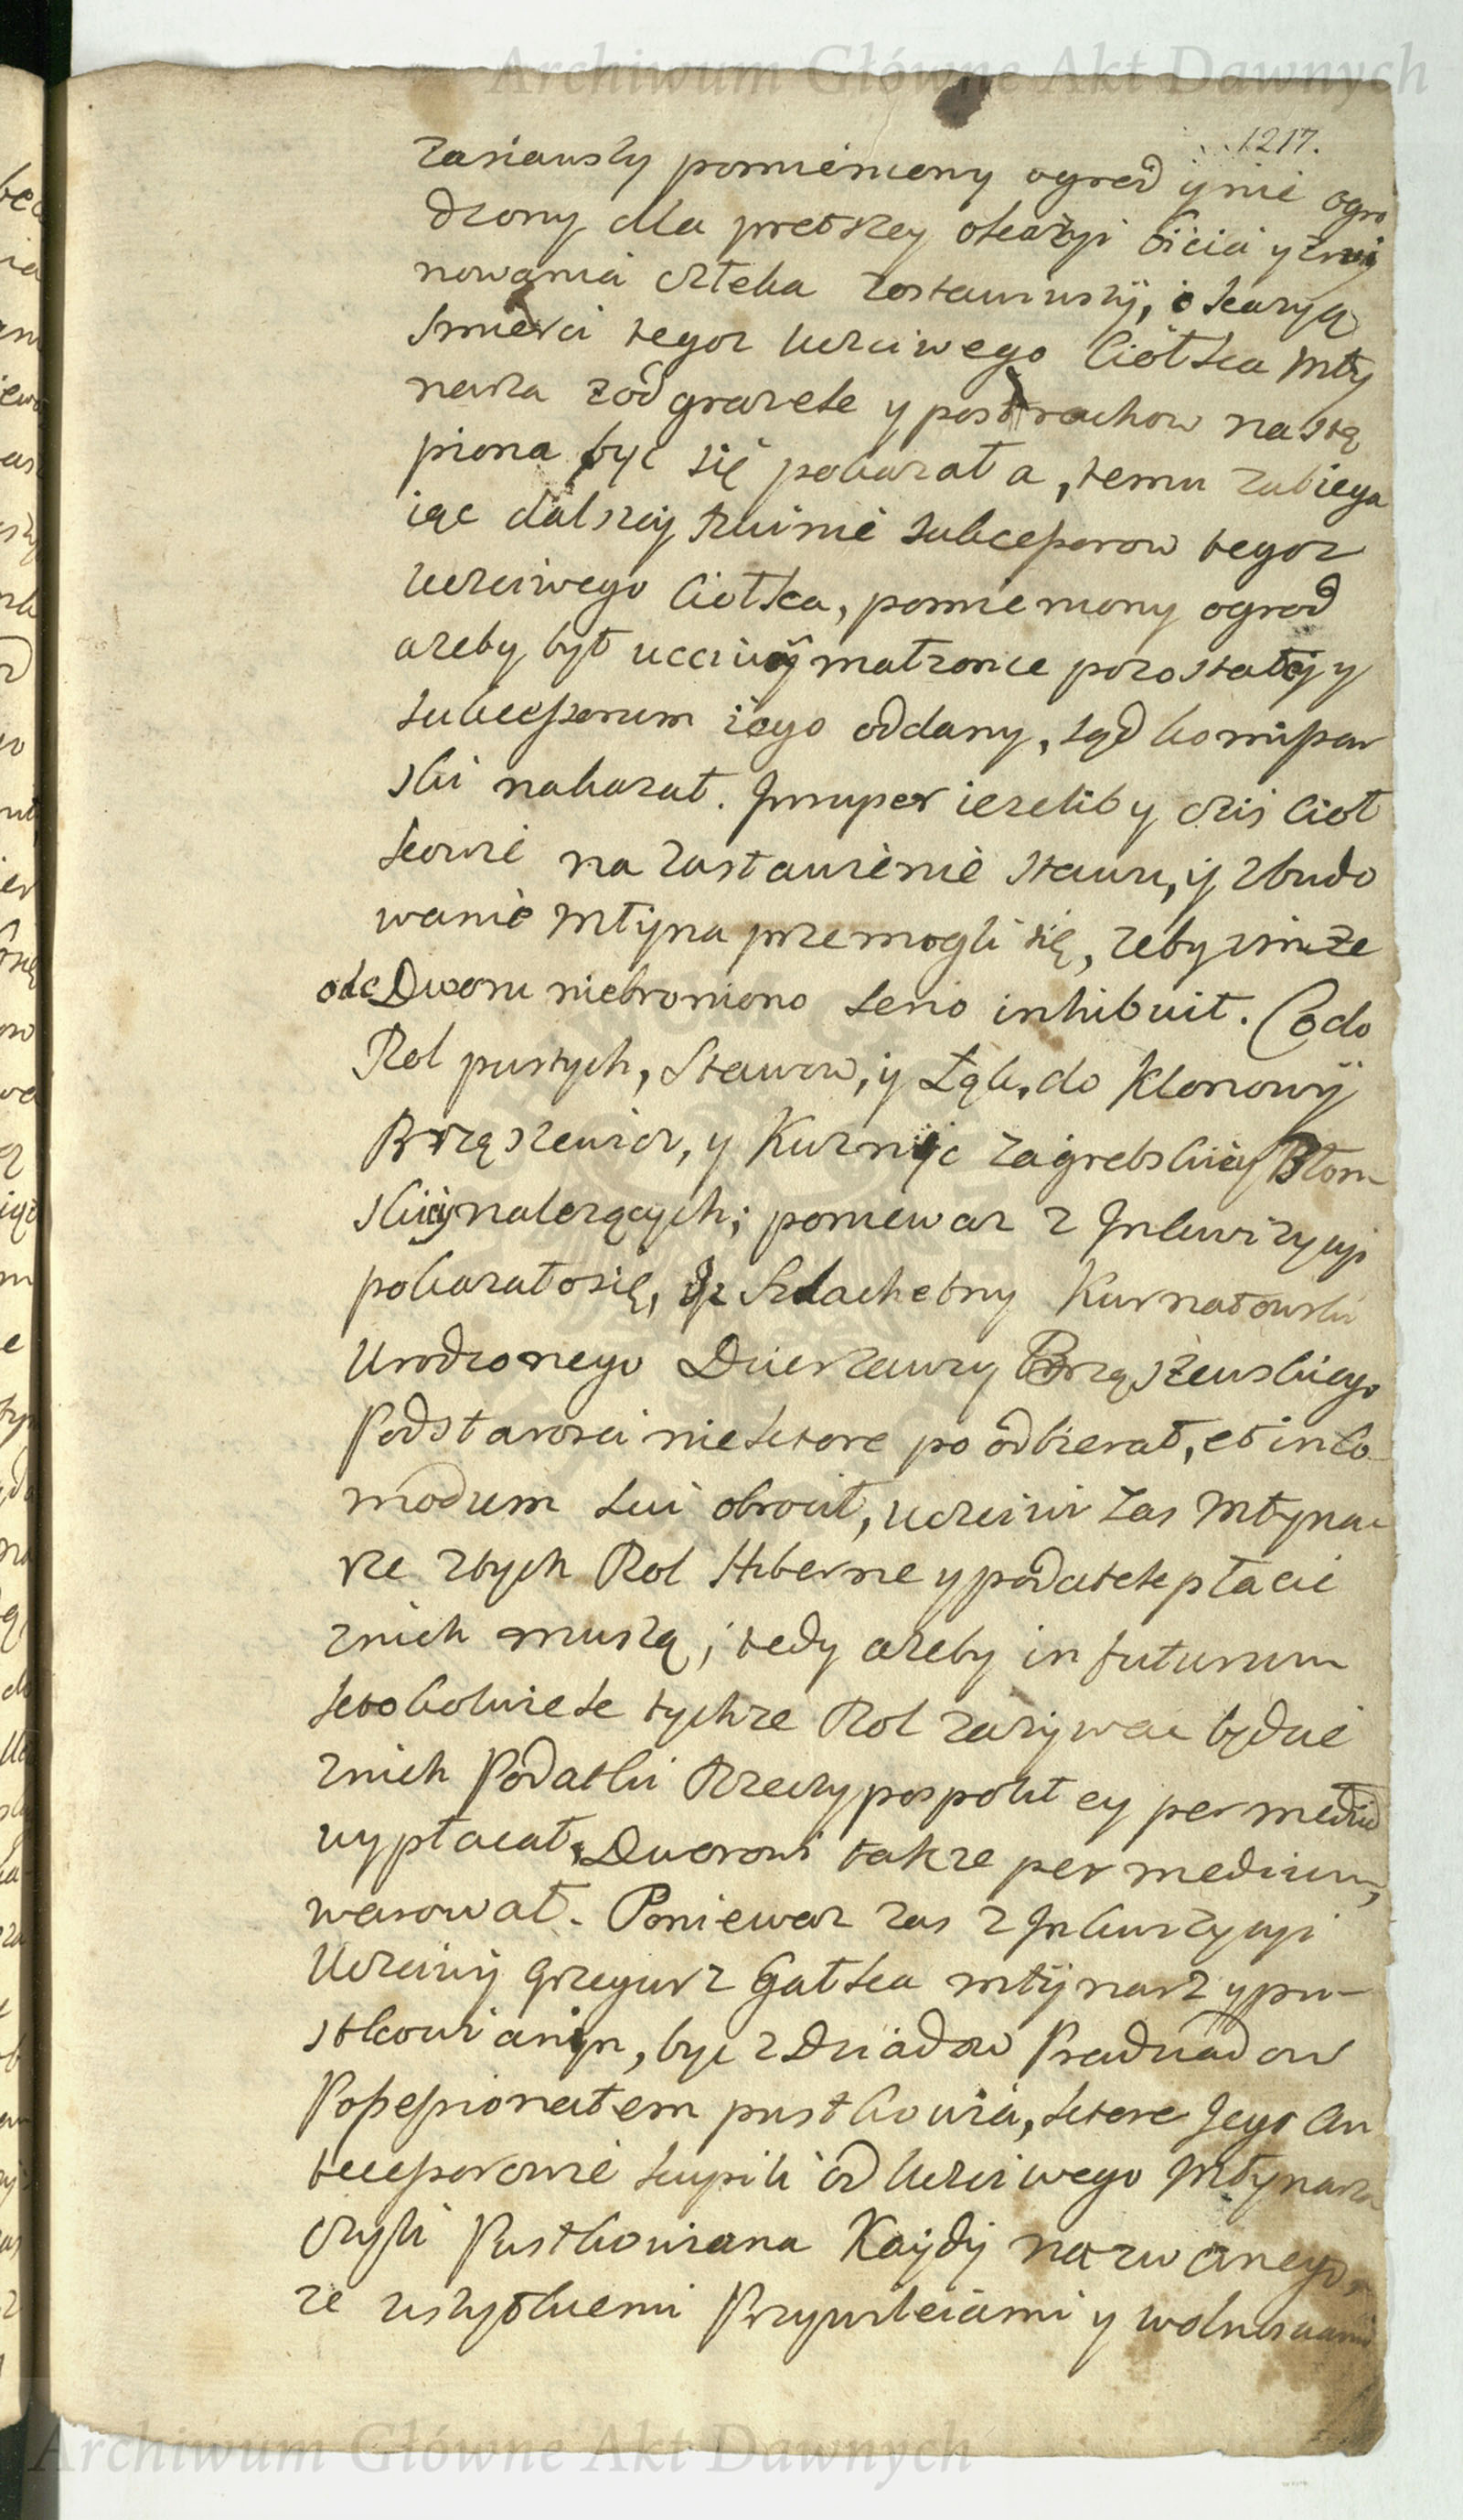 Archiwum Główne Akt Dawnych
1217.
zasiawszy pomieniony ogrod y nie ogro
dzony dla prętszey okazyi bicia y zruy
nowania człeka zostawiwszy, okazyą
smierci tegoz uczciwego Ciołka Mły
narza z odgrazek y postrachow nastą
piona być się pokazała, temu zabiega
iąc dalszey ruinie sukcessorow tegoz
uczciwego Ciołka, pomieniony ogrod
azeby był uczciwey matronie pozostałey y
sukcessorom iego oddany, sąd kommissar
ski nakazał. Insuper iezeliby ciz Cioł
kowie na zastawienie stawu, y zbudo
wanie Młyna przemogli się, zeby im ze
Dworu niebroniono serio inhibuit. Co do
Rol pustych, Stawow, y Łąk, do Klonowy
Brząszewicz, y Kuznic Zagrebskiey Błon
skiey nalezących; poniewaz z Inkwizycyi
pokazało się, iz Szlachetny Kurnatowski
Urodzonego Dzierzawcy Brząszewskiego
Podstarosci niektore poodbierał, et in co
modum sui obrocił, uczciwi zas Młyna
rze z tych Rol Hiberne y podatek płacić
z nich muszą; tedy azeby in futurum
ktokolwiek tychze Rol zazywac będzie
z nich Podatki Rzeczypospolitey per mediu
wypłacał, Dworowi takze per medium,
warował. Poniewaz zas z Inkwizycyi
Uczciwy Grzegurz Gałka młynarz y pu-
stkowianyn, być z Dziadow Pradziadow
Possessionatem pustkowia, ktore Jego An
tecessorowie kupili od Uczciwego Młynarza
czyli Pustkowiana Kaydy nazwanego,
ze wszystkiemi Przywileiami y wolnosciami
Archiwum Główne Akt Dawnych